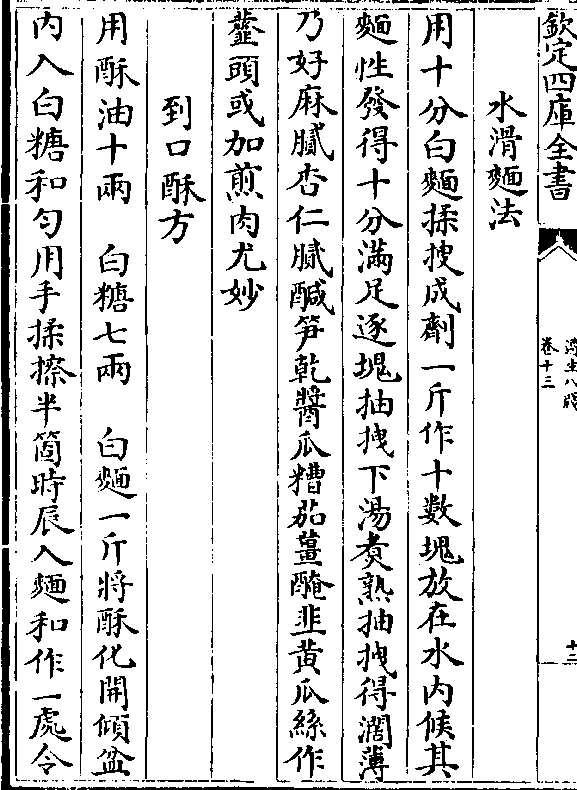 欽定四庫全書
遵生八牋
卷十三
十三
水滑麵法
用十分白麵揉搜成劑一斤作十數塊放在水内候其
麵性發得十分滿足逐塊抽拽下湯煑熟抽拽得濶薄
乃好麻膩杏仁膩鹹笋乾醬瓜糟茄薑醃韭黄瓜絲作
虀頭或加煎肉尤妙
到口酥方
用酥油十兩　白糖七兩　白麵一斤將酥化開傾盆
内入白糖和匀用手揉擦半箇時辰入麵和作一處令